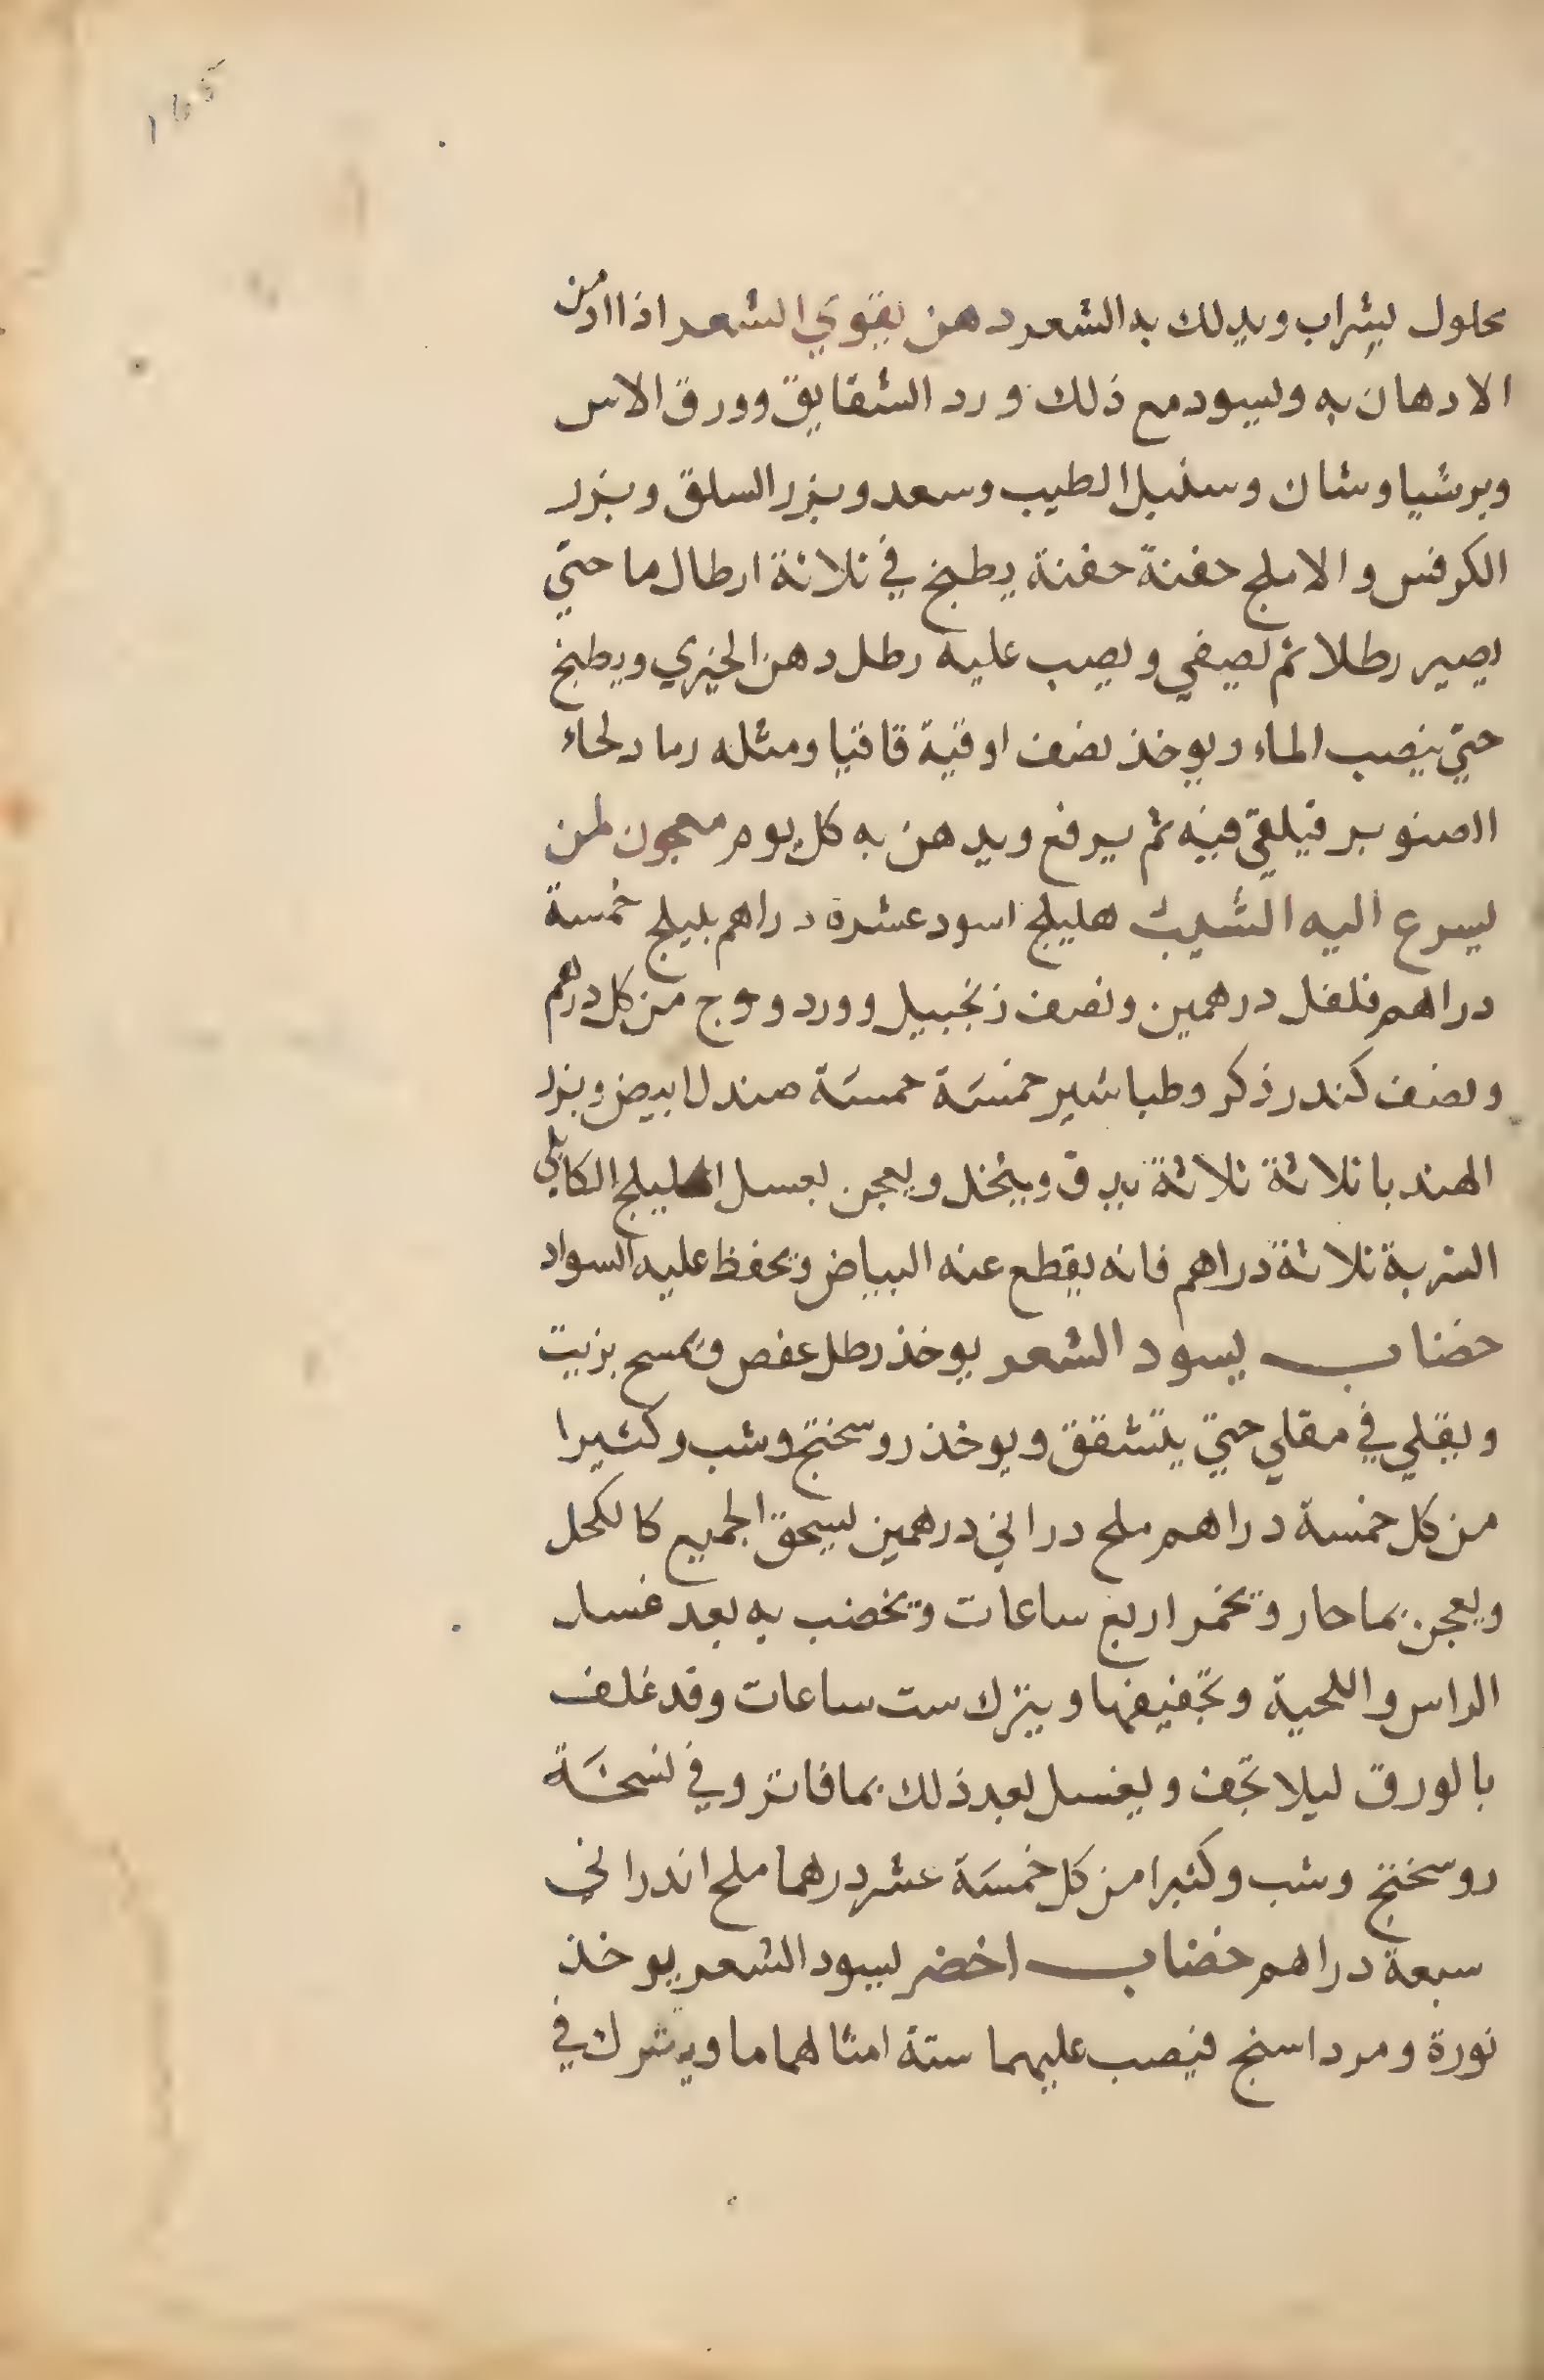 محلول بشراب ويدلك به الشعر دهن يقوي الشعر اذا ادمن
الادهان به ويسود مع ذلك ورد الشقايق وورق الاس
وبرشياوشان وسنبل الطيب وسعد وبزر السلق وبزر
الكرفس والاملج حفنة حفنة يطبخ في ثلاثة ارطال ما حتي
يصير رطلا ثم يصفي ويصب عليه رطل دهن الخيري ويطبخ
حتي ينصب الماء ويوخذ نصف اوقية قاقيا ومثله رماد لحاء
الصنوبر فيلقي فيه ثم يرفع ويدهن به كل يوم معجون لمن
يسرع اليه الشيب هليلج اسود عشرة دراهم بليلج خمسة
دراهم فلفل درهمين ونصف زنجبيل وورد ووج من كل درهم
ونصف كندر ذكر وطباشير خمسة خمسة صندل ابيض وبزر
الهندبا ثلاثة ثلاثة يدق وينخل ويعجن بعسل الهليلج الكابلي
الشربة ثلاثة دراهم فانه يقطع عنه البياض ويحفظ عليه السواد
خضاب يسود الشعر يوخذ رطل عفص ويمسح بزيت
ويقلي في مقلي حتي يتشقق ويوخذ روسختج وشب وكثيرا
من كل خمسة دراهم ملح دراني درهمين يسحق الجميع كالكحل
ويعجن بما حار ويخمر اربع ساعات ويخضب به بعد غسل
الراس واللحية وتجفيفها ويترك ست ساعات وقد غلف
بالورق ليلا تجف ويغسل بعد ذلك بما فاتر وفي نسخة
روسختج وشب وكثيرا من كل خمسة عشر درهما ملح اندراني
سبعة دراهم خضاب اخضر يسود الشعر يوخذ
نورة ومرداسنج فيصب عليهما ستة امثالهما ما ويترك في